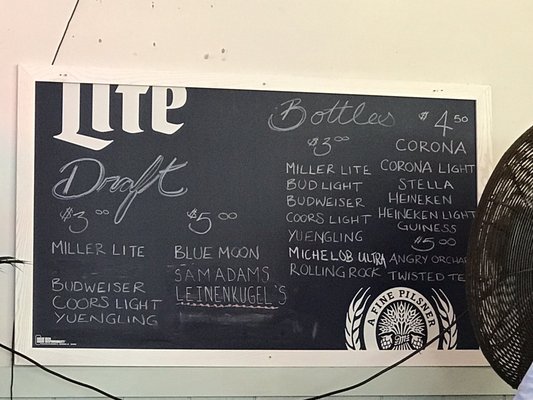 Lite
Draft
$3.00
MILLER LITE
BUDWEISER
COORS LIGHT
YUENGLING
$5.00
BLUE MOON
SAM ADAMS
LEINENKUGEL'S
Bottles
$3.00
MILLER LITE
BUD LIGHT
BUDWEISER
COORS LIGHT
YUENGLING
MICHELOB ULTRA
ROLLING ROCK
$4.50
CORONA
CORONA LIGHT
STELLA
HEINEKEN
HEINEKEN LIGHT
GUINESS
$5.00
ANGRY ORCHAR
TWISTED TE
A FINE PILSNER